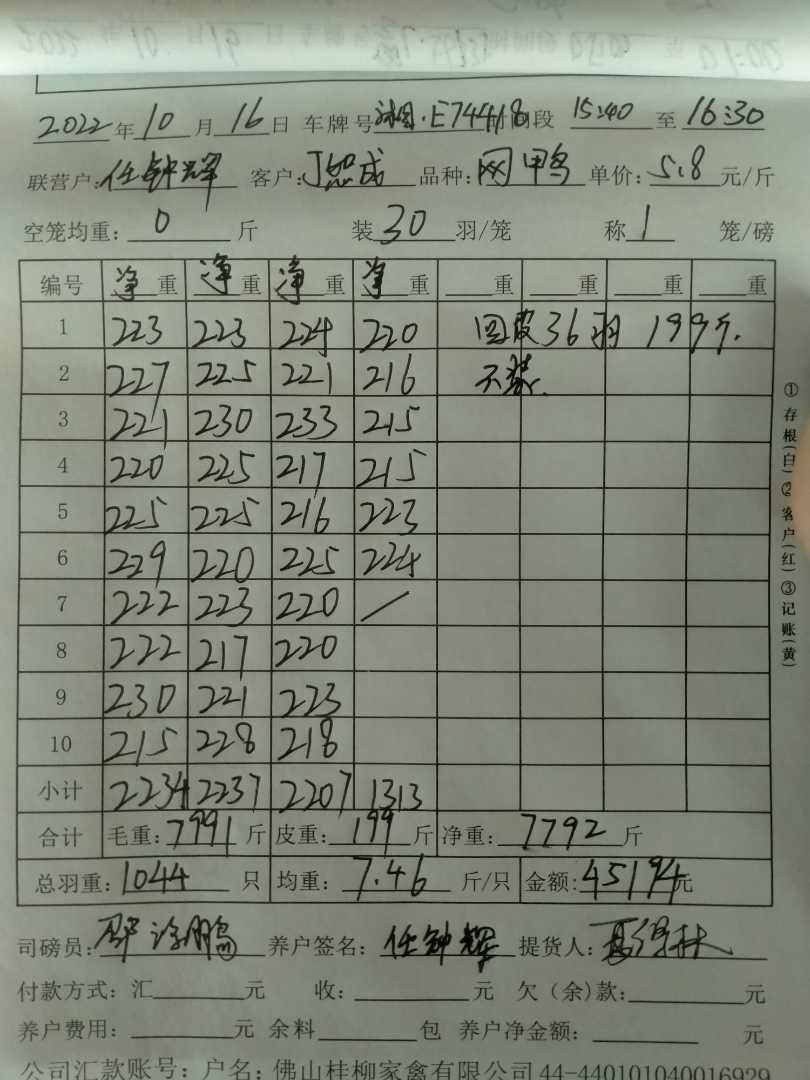 2022年10月16日 车牌号湘·E74418时间段 15:40至16:30
联营户:任钟辉 客户: 品种:网鸭 单价:5.8元/斤
空笼均重:0斤 装30羽/笼 称1笼/磅
编号 净重 净重 净重 净重 重 重 重 重
1 223 223 224 220 回皮36羽 199斤.
2 227 225 221 216 不装.
3 221 230 233 215
4 220 225 217 215
5 225 225 216 223
6 229 220 225 224
7 222 223 220 /
8 222 217 220
9 230 221 223
10 215 228 218
小计 2234 2237 2207 1313
合计 毛重:7991斤 皮重:199斤 净重:7792斤
总羽重:1044只 均重:7.46斤/只 金额:45194元
司磅员: 养户签名:任钟辉 提货人:
付款方式:汇元 收:元 欠(余)款:元
养户费用:元 余料包 养户净金额:元
公司汇款账号:户名:佛山桂柳家禽有限公司44-440101040016929
①存根(白)②客户(红)③记账(黄)